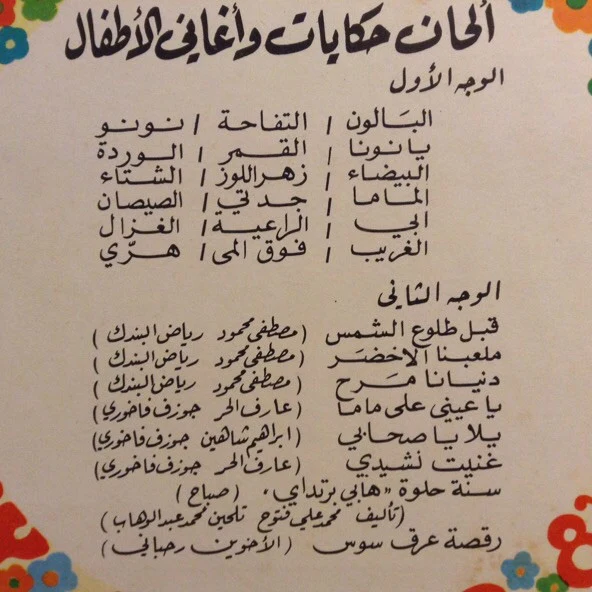 ألحان حكايات وأغاني الأطفال
الوجه الأول
البَالون / التفاحة / نونو
يا نونا / القمر / الوردة
البيضاء / زهر اللوز / الشتاء
الماما / جدتي / الصيصان
ابي / الراعية / الغزال
الغريب / فوق المى / هرّي
الوجه الثانى
قبل طلوع الشمس (مصطفى محمود رياض البندك)
ملعبنا الاخضَر (مصطفى محمود رياض البندك)
دنيانا مَرح (مصطفى محمود رياض البندك)
يا عينى على ماما (عارف الحر جوزف فاخوري)
يلا يا صحابي (ابراهيم شاهين جوزف فاخوري)
غنيت نشيدي (عارف الحر جوزف فاخوري)
سنة حلوة "هابي برتداي" (صباح)
(تأليف محمد علي فتوح تلحين محمد عبد الوهاب)
رقصة عرق سوس (الأخوين رحباني)